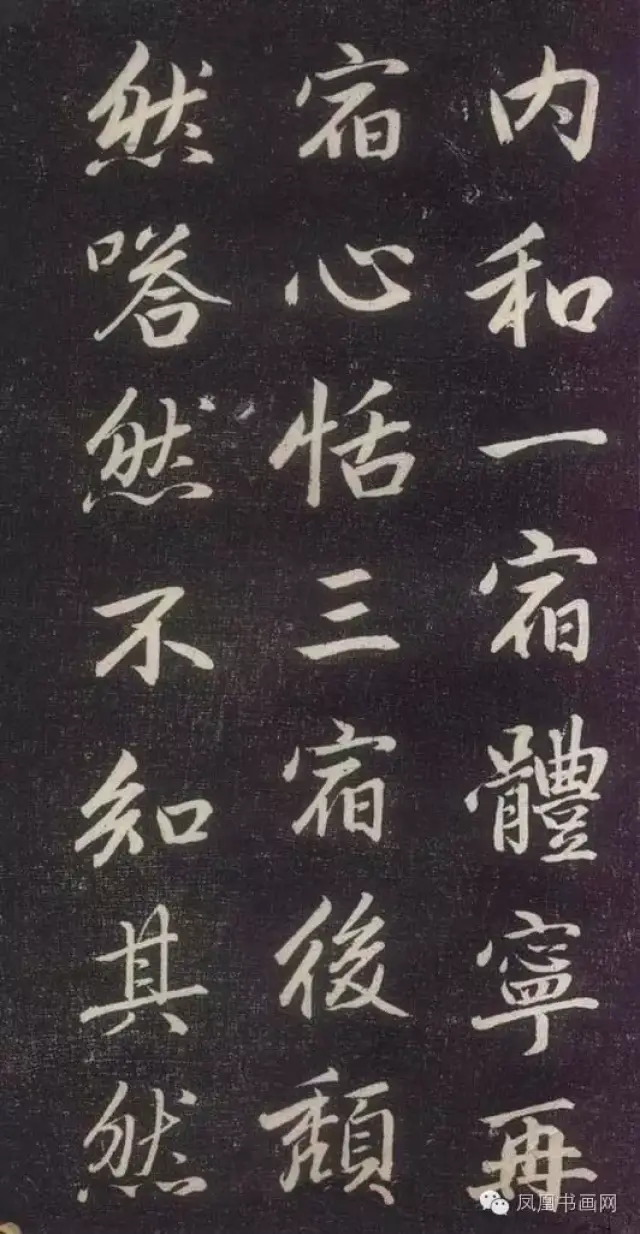 内和一宿體寧再
宿心恬三宿後頹
然嗒然不知其然
凤凰书画网